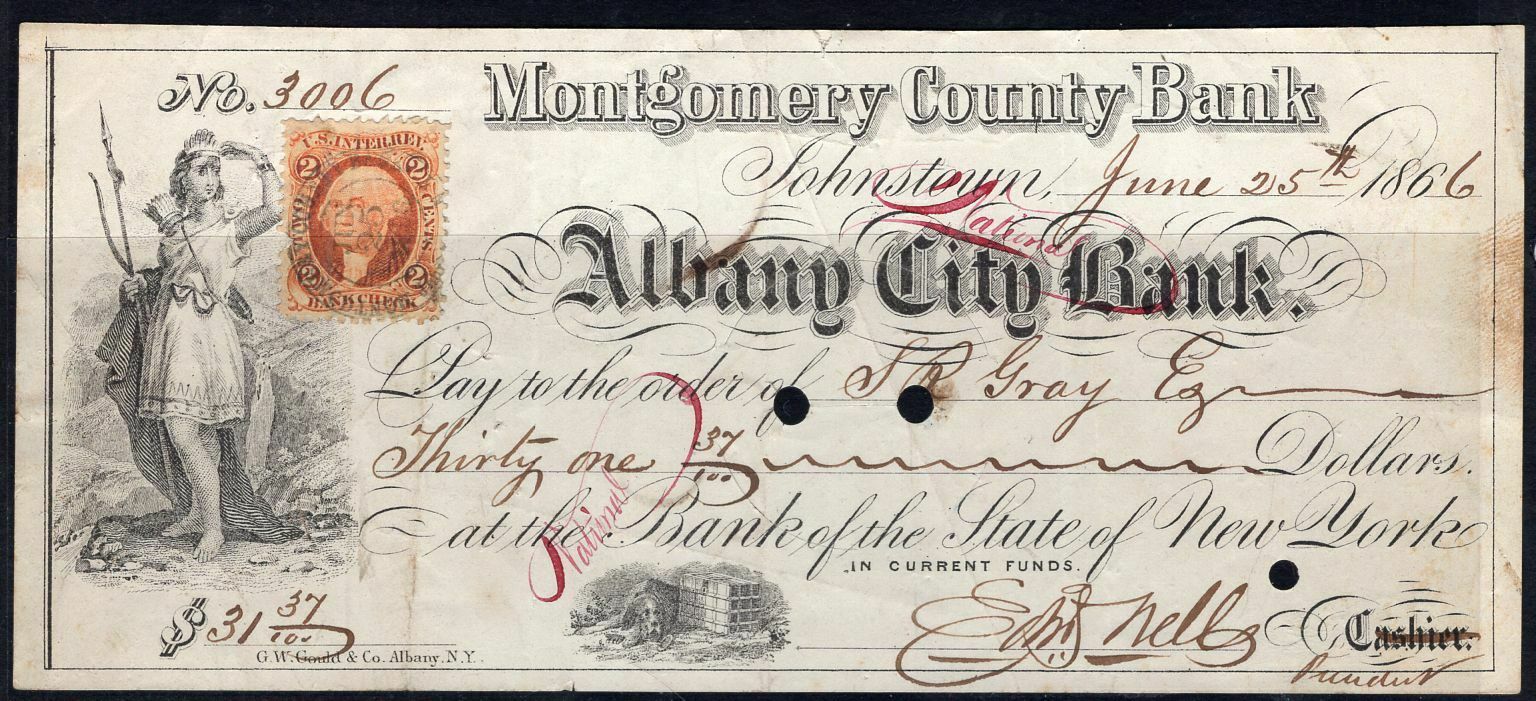 No. 3006
Montgomery County Bank
Johnstown, June 25th 1866
U.S. INTER. REV.
2 2
CENTS
2 2
BANK CHECK
National
Albany City Bank.
Pay to the order of S R Gray Esq
Thirty one 37/100 Dollars.
National
at the Bank of the State of New York
IN CURRENT FUNDS.
$31 37/100
Edw Wells Cashier.
President
G.W. Gould & Co. Albany. N.Y.